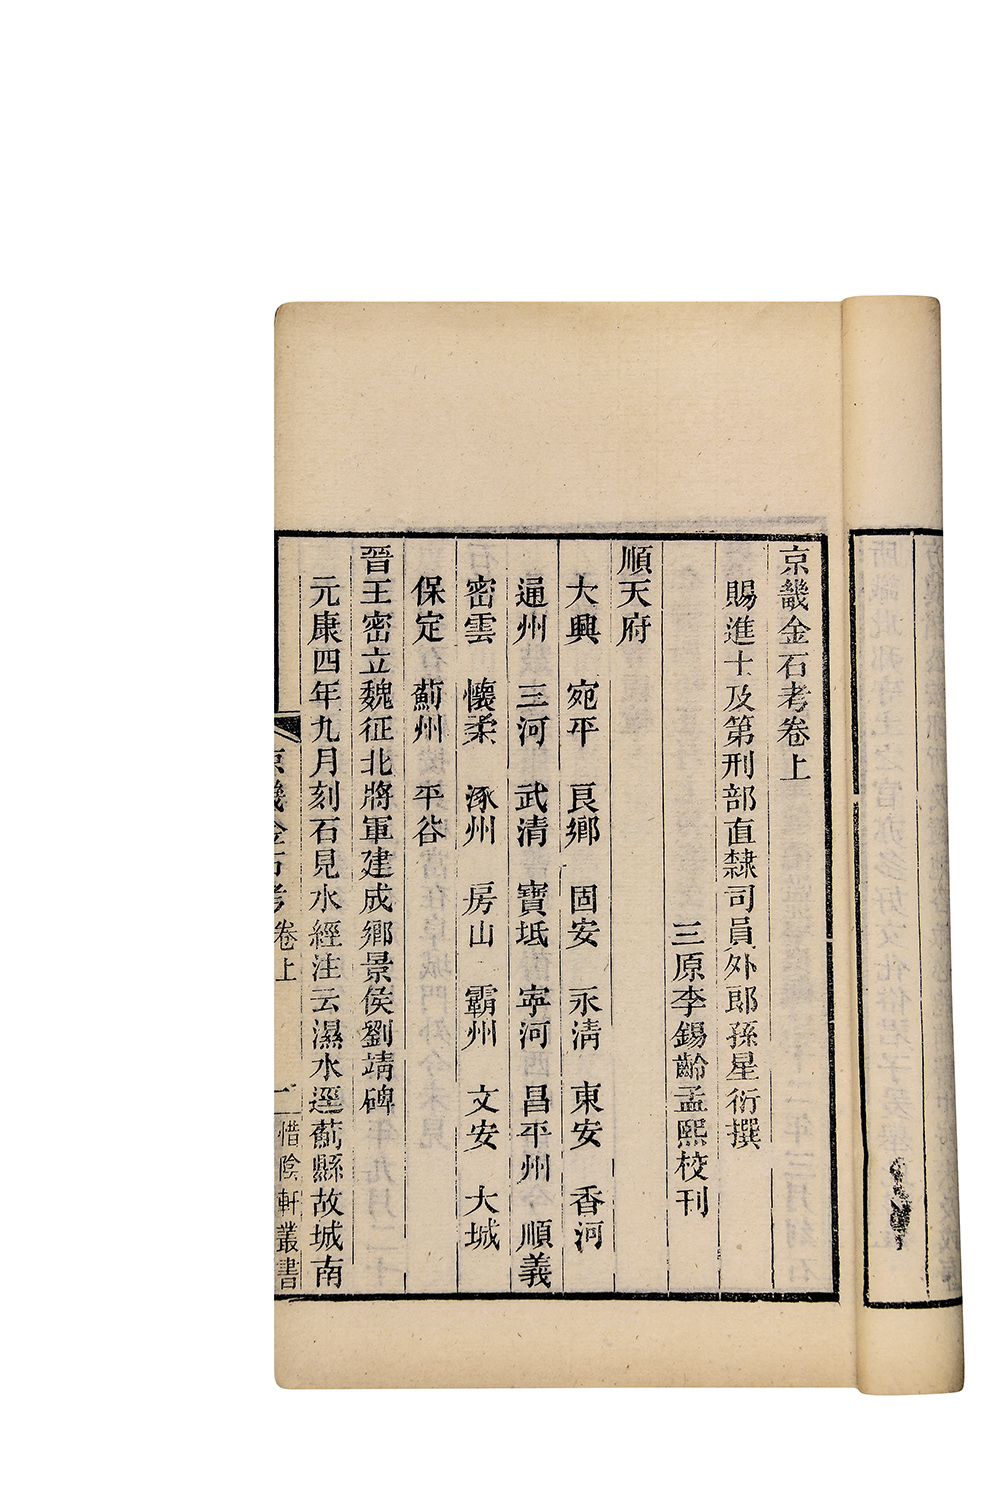 京畿金石考卷上
賜進士及第刑部直隸司員外郎孫星衍撰
三原李錫齡孟熙校刊
順天府
大興 宛平 良鄉 固安 永清 東安 香河
通州 三河 武清 寶坻 寧河 昌平州 順義
密雲 懷柔 涿州 房山 霸州 文安 大城
保定 薊州 平谷
晉王密立魏征北將軍建成鄉景侯劉靖碑
元康四年九月刻石見水經注云濕水逕薊縣故城南
京畿金石考 卷上 一 惜陰軒叢書